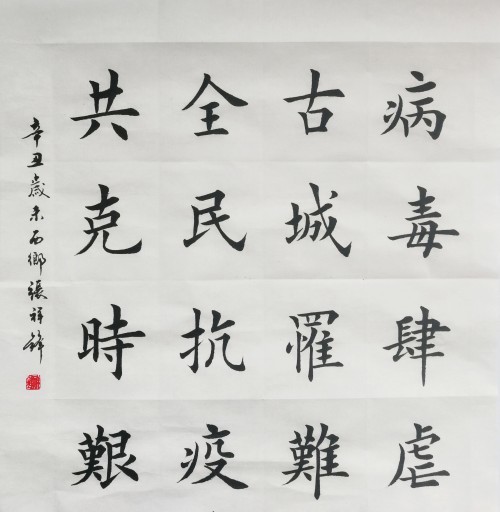 病毒肆虐
古城罹難
全民抗疫
共克時艱
辛丑歲末西鄉張祥鋒